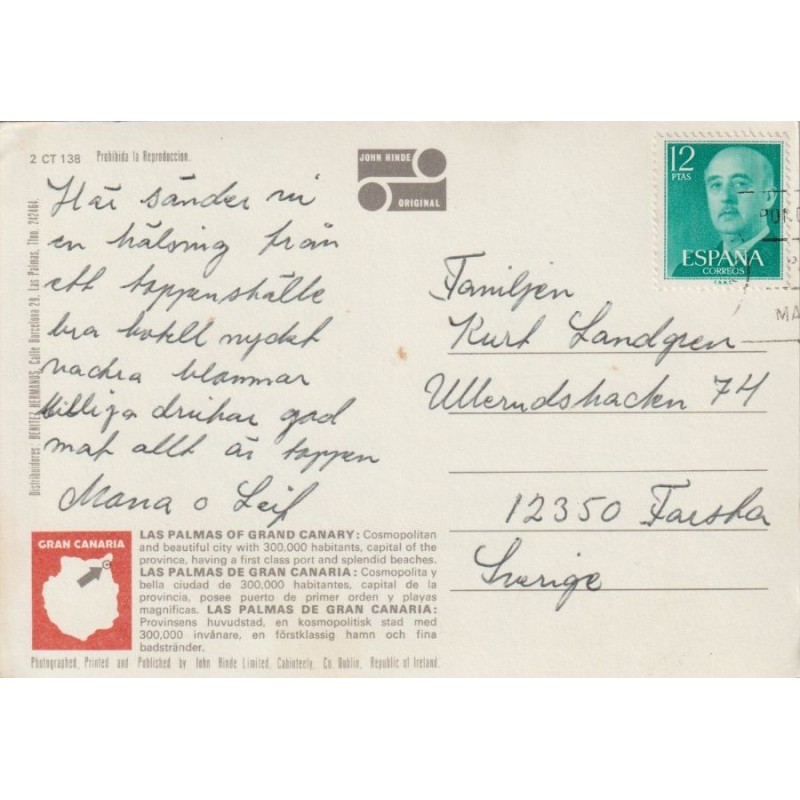 2 CT 138 Prohibida la Reproduccion.
JOHN HINDE
ORIGINAL
12
PTAS
ESPAÑA
CORREOS
MA
Här sänder vi
en hälsning från
ett toppenställe
bra hotell mycket
vackra blommor
billiga drickar god
mat allt är toppen
Mona o Leif
Familjen
Kurt Landgren
Ullerudsbacken 74
12350 Farsta
Sverige
Distribuidores: BENITEZ HERMANOS, Calle Barcelona 29. Las Palmas, Tfno. 242464.
GRAN CANARIA
LAS PALMAS OF GRAND CANARY: Cosmopolitan
and beautiful city with 300,000 habitants, capital of the
province, having a first class port and splendid beaches.
LAS PALMAS DE GRAN CANARIA: Cosmopolita y
bella ciudad de 300,000 habitantes, capital de la
provincia, posee puerto de primer orden y playas
magnificas. LAS PALMAS DE GRAN CANARIA:
Provinsens huvudstad, en kosmopolitisk stad med
300,000 invånare, en förstklassig hamn och fina
badstränder.
Photographed, Printed and Published by John Hinde Limited, Cabinteely, Co. Dublin, Republic of Ireland.